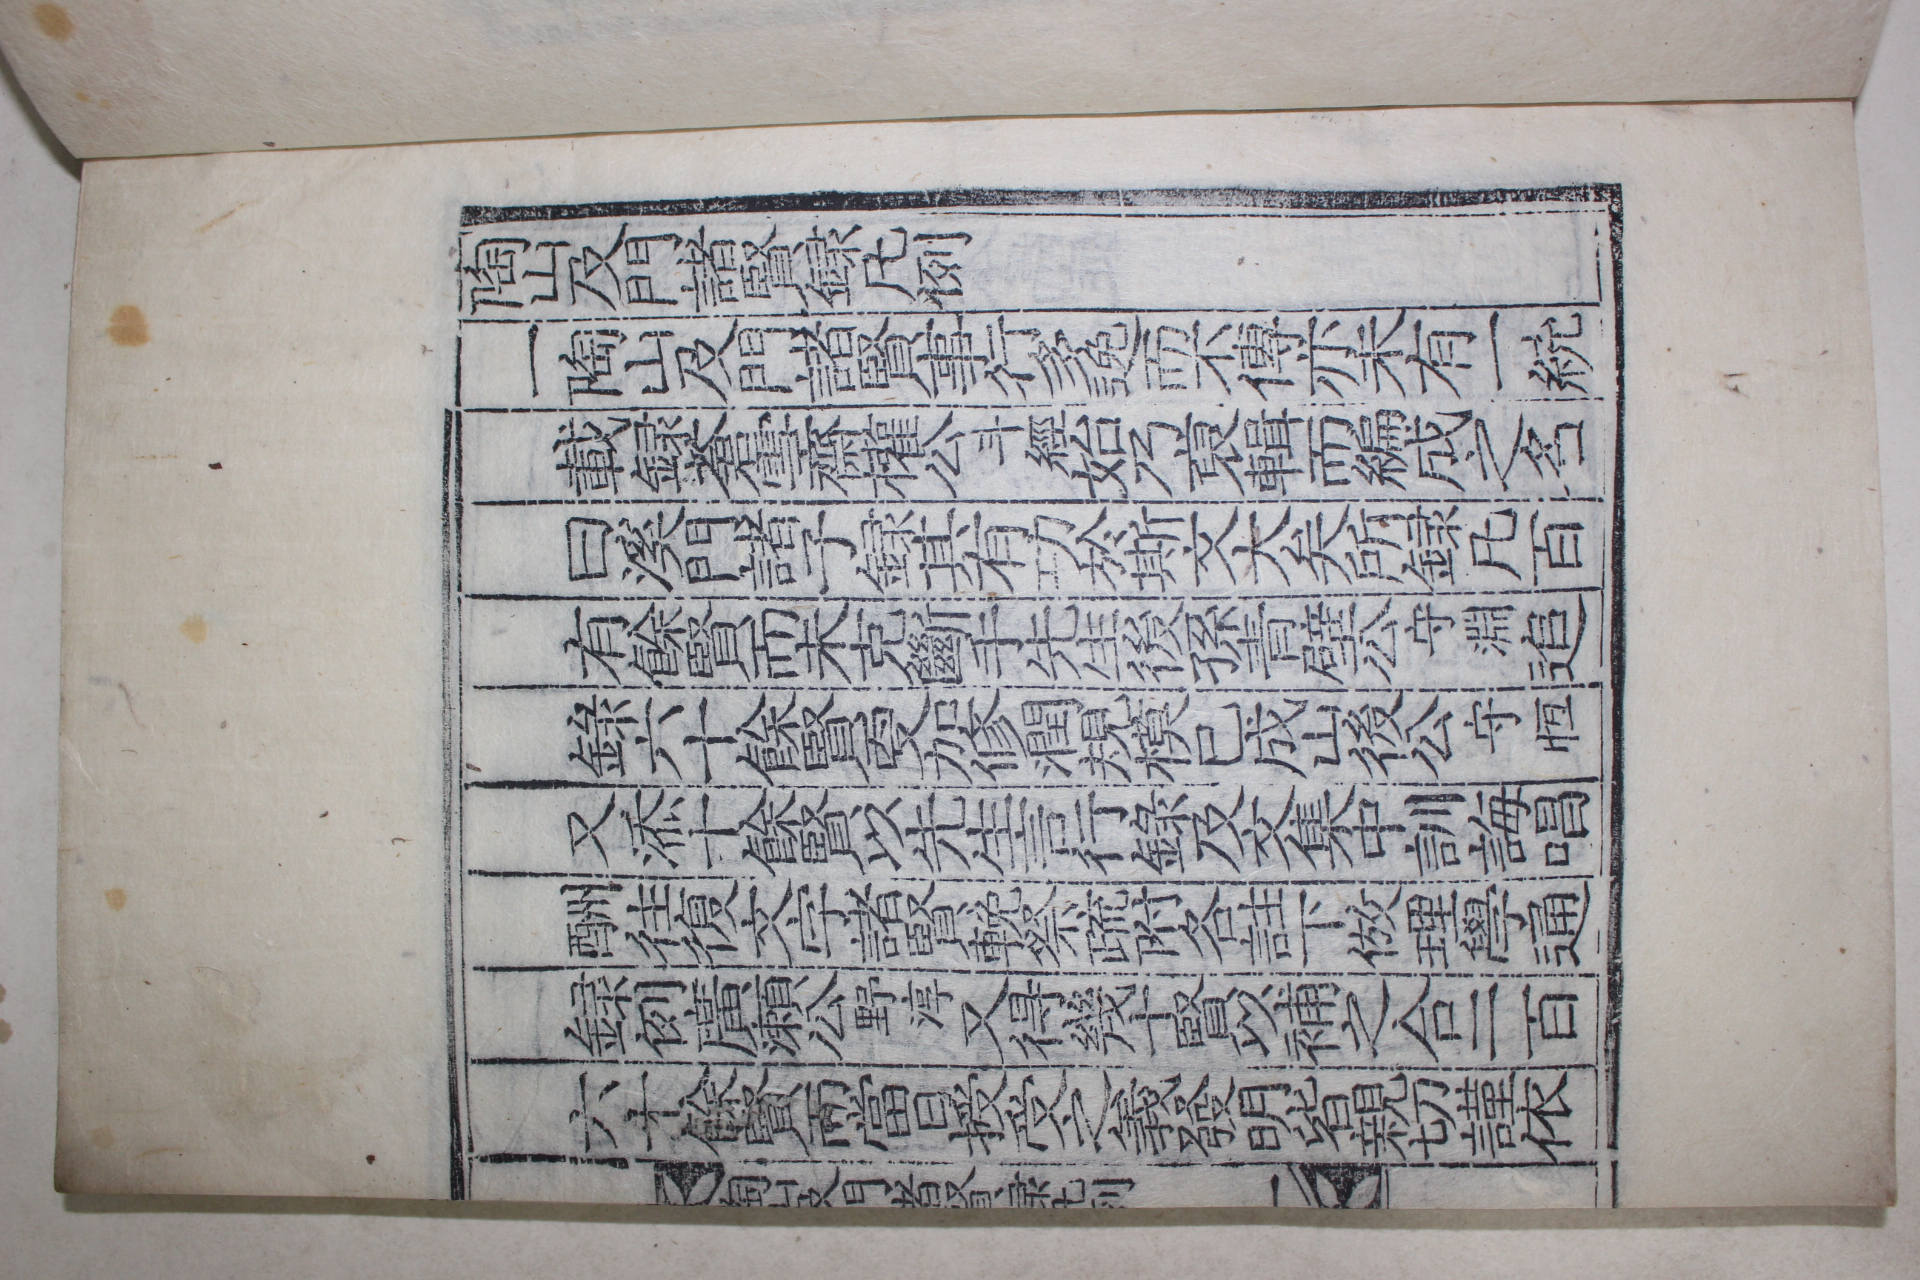 陶山及門諸賢錄凡例
一陶山及門諸賢事行多逸而不傳亦未有一統
載錄蒼雪齋權公斗經始乃裒輯而編成之名
曰溪門諸子錄其有功於斯文大矣所錄凡百
有餘賢而未克斷手先生後孫青壁公守淵追
錄六十餘賢爰加修潤規模已成山後公守恒
又添十餘賢以先生言行錄及文集中訓誨唱
酬往復文字諸賢輓祭疏附各註下倣理學通
錄例廣瀨公野淳又得幾十賢以補之合二百
六十餘賢而當日授受之義發明皆親切謹依
陶山及門諸賢錄凡例 一